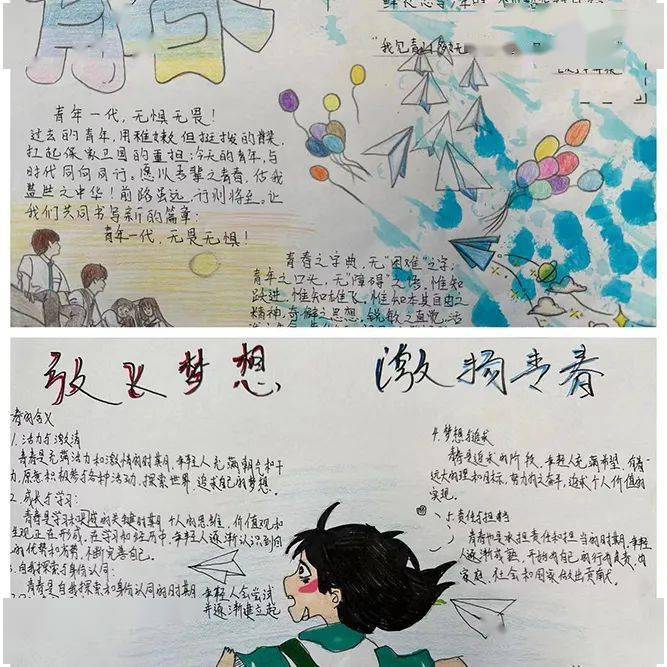 青春
青年一代，无惧无畏！
过去的青年，用稚嫩但挺拔的脊梁，
扛起保家卫国的重担；今天的青年，与
时代同向同行。愿以吾辈之青春，佑我
盛世之中华！前路虽远，行则将至。让
我们共同书写新的篇章：
青年一代，无畏无惧！
青春之字典，无“困难”之字；
青年之口头，无“障碍”之语；惟知
跃进，惟知雄飞，惟知本其自由之
精神，奇僻之思想，锐敏之直觉，活
放飞梦想 激扬青春
1.活力与激情
青春是充满活力和激情的时期，年轻人充满朝气和干
力，愿意积极参与各种活动，探索世界，追求自己的梦想。
2.成长与学习：
青春是学习和成长的关键时期，个人的思维，价值观和
世界观正在形成，在学习和经历中，年轻人逐渐认识到自
的优势和劣势，不断完善自己。
3.自我探索与身份认同：
青春是自我探索和身份认同的时期，年轻人会尝试
并逐渐建立起
4.梦想与追求
青春是追求的阶段，年轻人充满希望，有着
远大的理和目标，努力的奋斗，追求个人价值的
实现。
5.责任与担当
青春也是承担责任和担当的时期，年轻
人逐渐成熟，开始为自己的行为负责，为
家庭、社会和国家做出贡献。